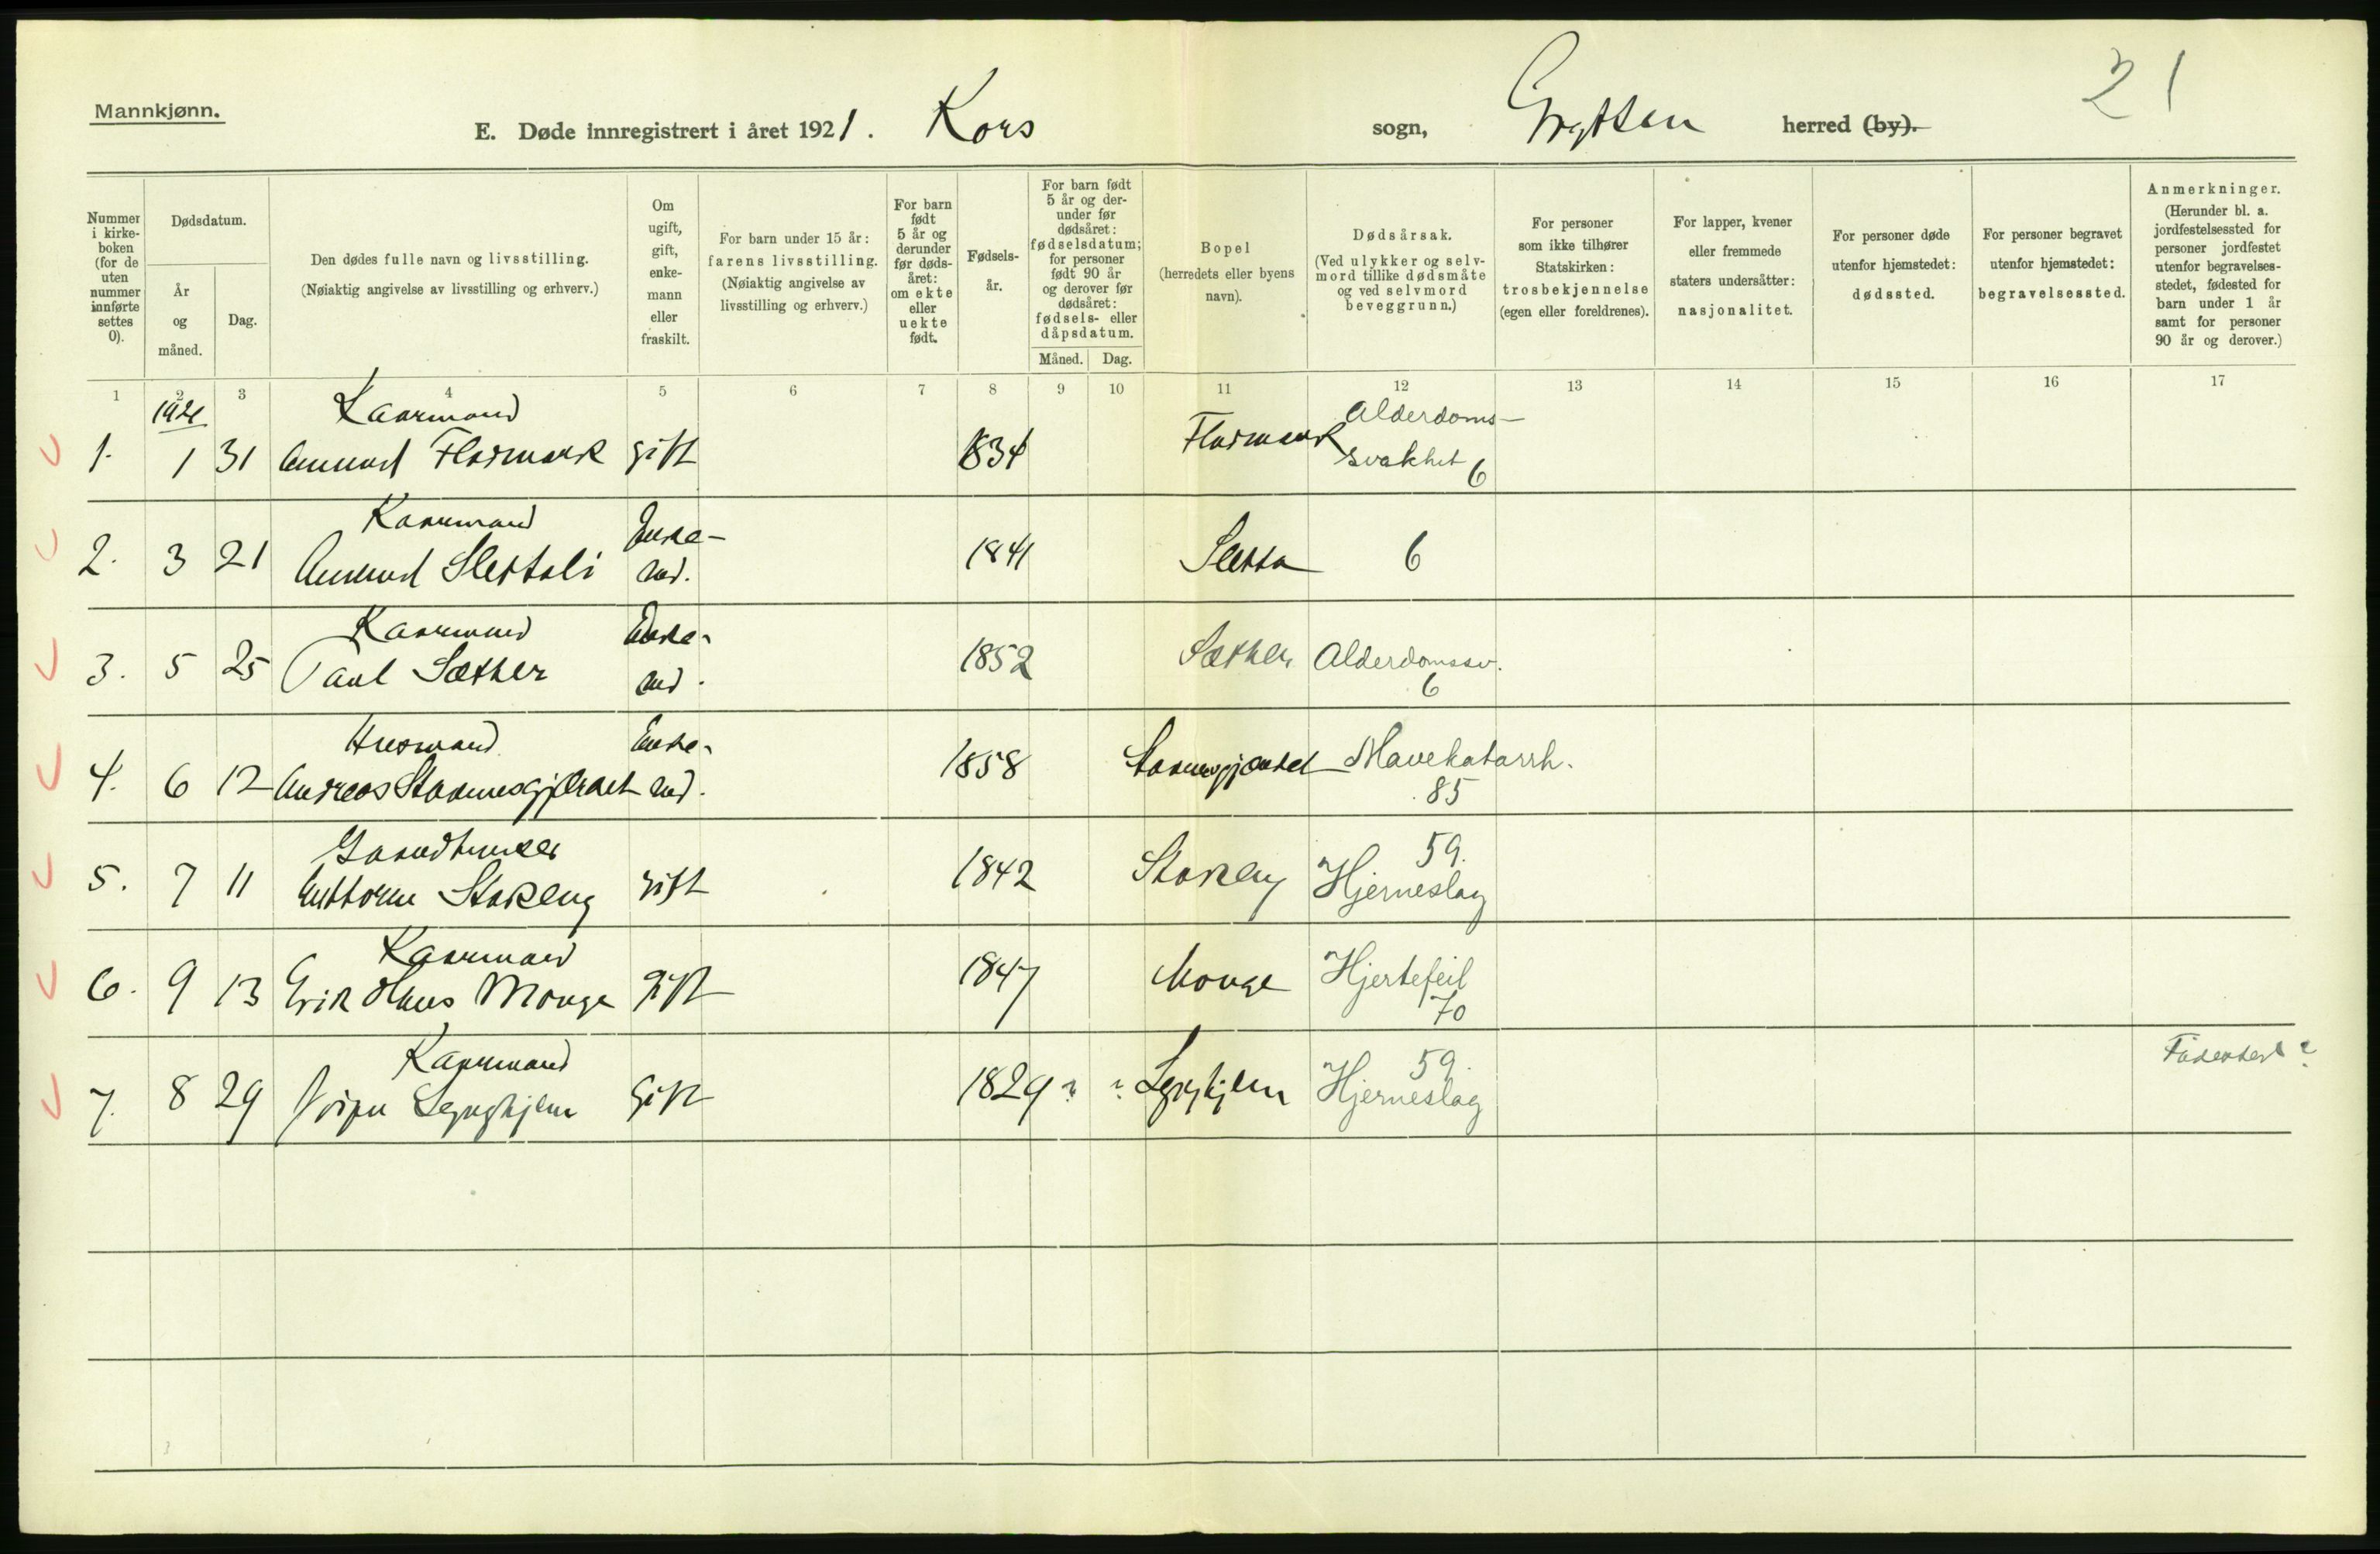 21
Mannkjønn.
E. Døde innregistrert i året 1921. Kors sogn, Grytten herred (by).
Nummer i kirkeboken (for de uten nummer innførte settes 0).
Dødsdatum.
År og måned.
Dag.
Den dødes fulle navn og livsstilling.
(Nøiaktig angivelse av livsstilling og erhverv.)
Om ugift, gift, enkemann eller fraskilt.
For barn under 15 år:
farens livsstilling.
(Nøiaktig angivelse av livsstilling og erhverv.)
For barn født 5 år og derunder før dødsåret: om ekte eller uekte født.
Fødselsår.
For barn født 5 år og derunder før dødsåret: fødselsdatum; for personer født 90 år og derover før dødsåret: fødsels- eller dåpsdatum.
Måned. Dag.
Bopel
(herredets eller byens navn).
Dødsårsak.
(Ved ulykker og selvmord tillike dødsmåte og ved selvmord beveggrunn.)
For personer som ikke tilhører Statskirken:
trosbekjennelse
(egen eller foreldrenes).
For lapper, kvener eller fremmede staters undersåtter:
nasjonalitet.
For personer døde utenfor hjemstedet:
dødssted.
For personer begravet utenfor hjemstedet:
begravelsessted.
Anmerkninger.
(Herunder bl. a. jordfestelsessted for personer jordfestet utenfor begravelsesstedet, fødested for barn under 1 år samt for personer 90 år og derover.)
1 2 3 4 5 6 7 8 9 10 11 12 13 14 15 16 17
1921 Kaarmand Alderdoms-
1. 1 31 Amund Flatmark gift 1834 Flatmark svakhet 6
Kaarmand Enke-
2. 3 21 Amund Slettali md. 1841 Sletta 6
Kaarmand Enke-
3. 5 25 Paul Sæther md. 1852 Sæther Alderdomssv.
6
Husmand Enke-
4. 6 12 Andreas md. 1858 Mavekatarrh.
85
59.
5. 7 11 Guttorm Stokeng gift 1842 Stokeng Hjerneslag
Kaarmand
6. 9 13 Erik Monge gift 1847 Monge Hjertefeil
70
Kaarmand 59. Födested?
7. 8 29 Lynghjem Gift 1829 ? ? Lynghjem Hjerneslag